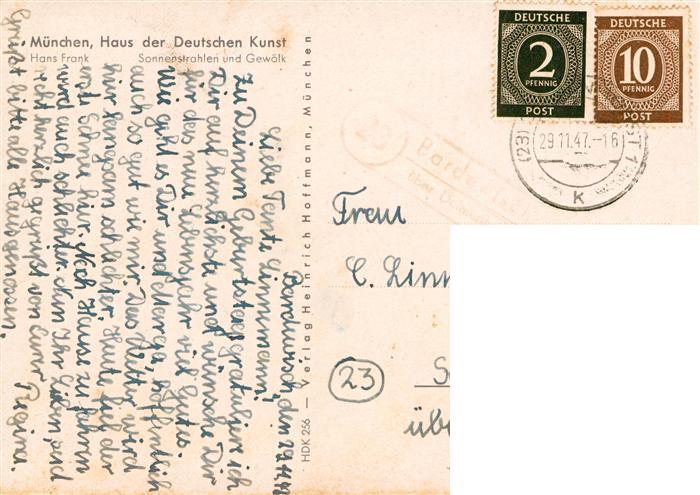 München, Haus der Deutschen Kunst
Hans Frank Sonnenstrahlen und Gewölk
Bardewisch, den 29.11.47
Liebe Tante Linnemann,
Zu Deinem Geburtstage gratuliere ich
Dir auf herzlichste und wünsche Dir
für das neue Lebensjahr viel Gutes.
Wie geht es Dir und Herega, hoffentlich
auch so gut wie mir. Das Wetter wird
hier langsam schlechter. Heute fiel der
erste Schnee hier. Nach Hause zu fahren
wird auch schlechter. Nun Ihr Lieben, seid
recht herzlich gegrüßt von Eurer Regina.
Grüßt bitte alle Hausgenossen.
HDK 256 — Verlag Heinrich Hoffmann, München
DEUTSCHE
2
PFENNIG
POST
DEUTSCHE
10
PFENNIG
POST
(23)
29.11.47.-16
k
(23) Bardewisch
über
Frau
C. Linn
23
über